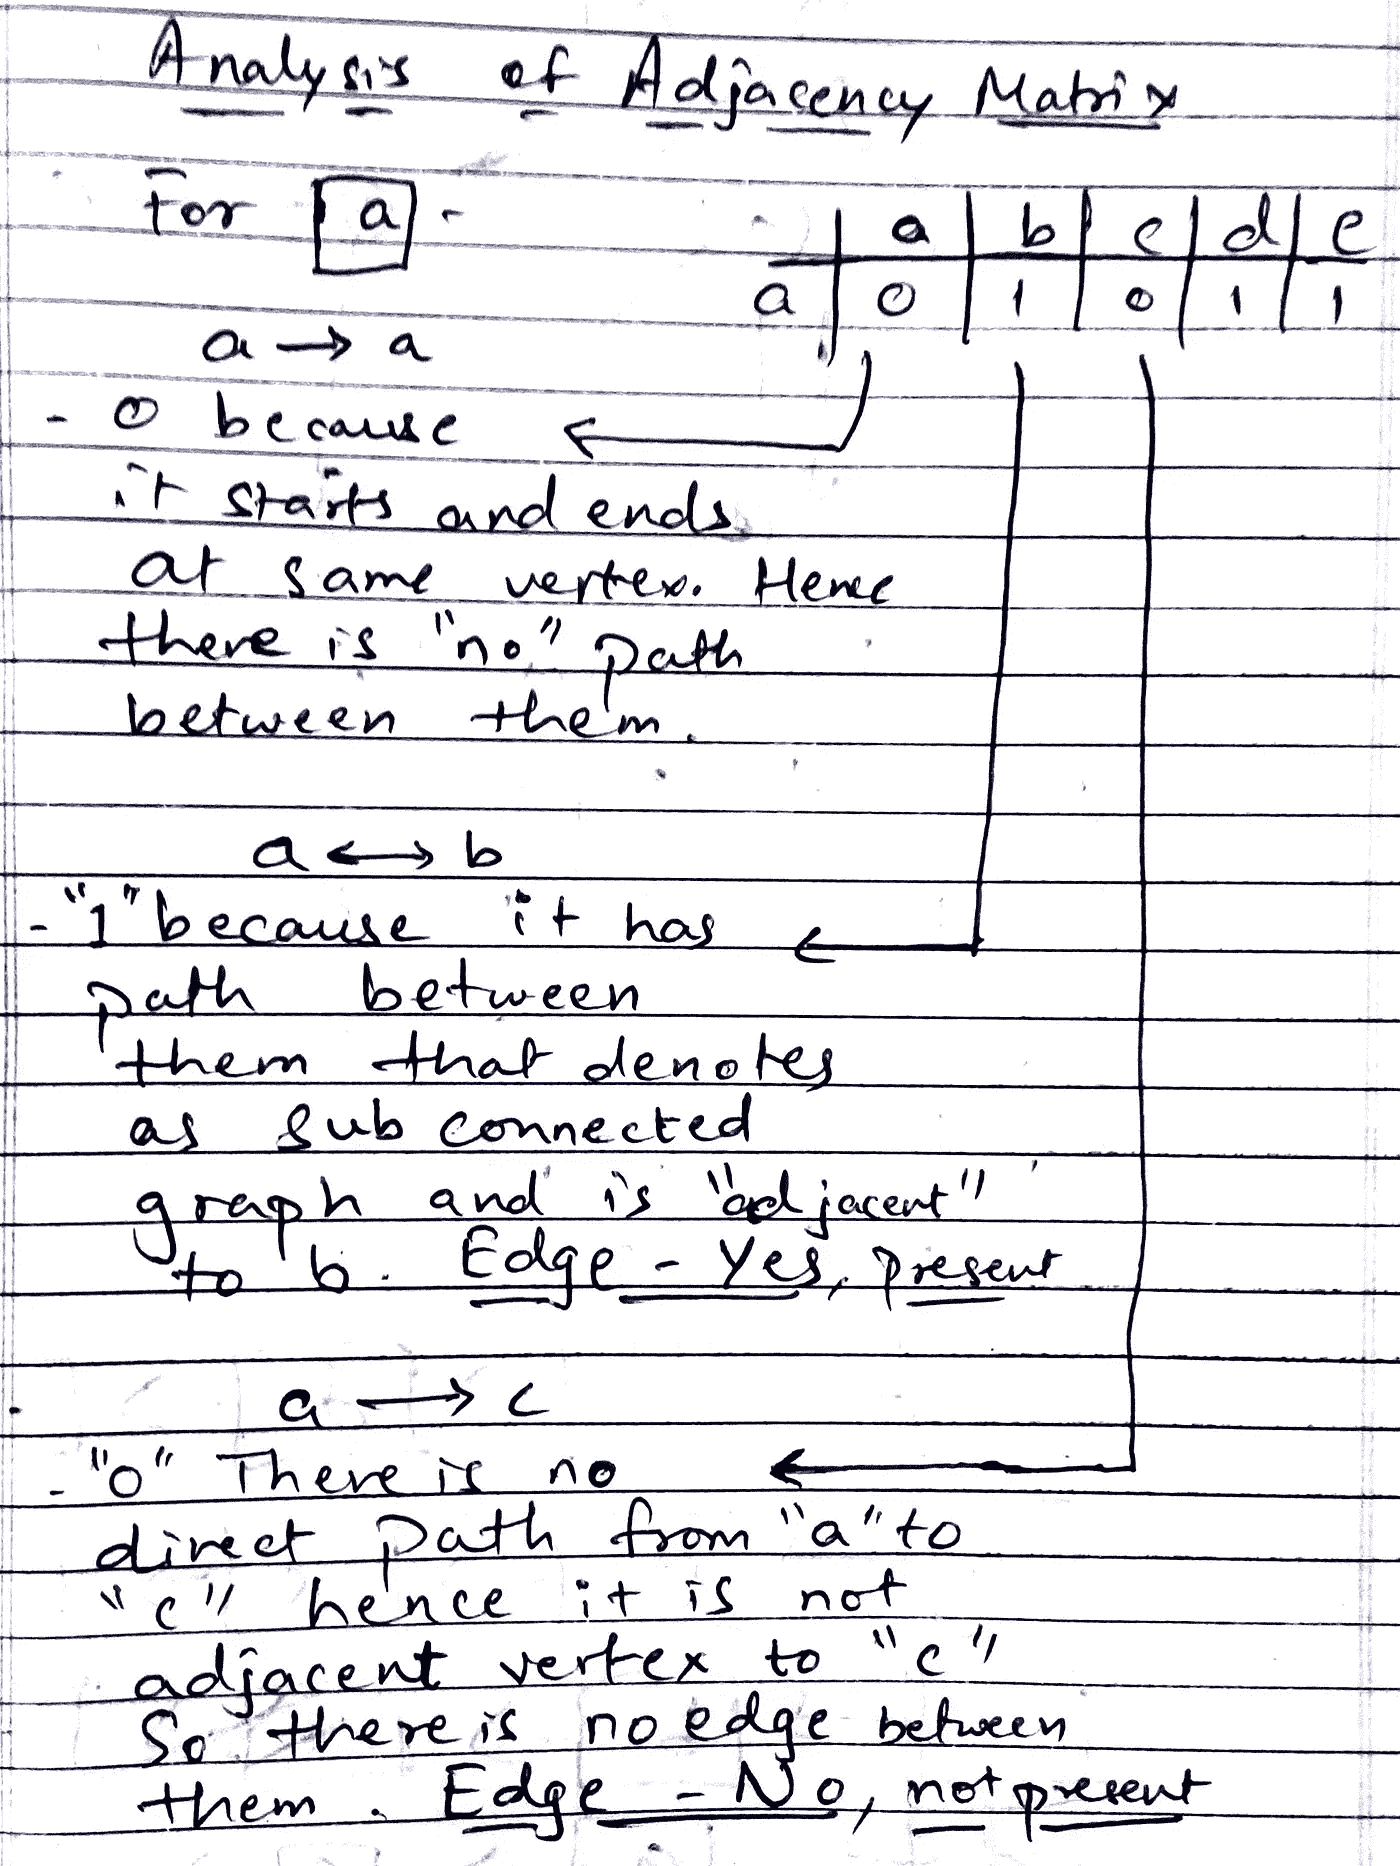 Analysis of Adjacency Matrix
For a -
a | b | c | d | e
a | 0 | 1 | 0 | 1 | 1
a → a
- 0 because
it starts and ends
at same vertex. Hence
there is "no" path
between them.
a ↔ b
- "1" because it has
path between
them that denotes
as sub connected
graph and is "adjacent"
to b. Edge - Yes, present
a → c
- "0" There is no
direct path from "a" to
"c" hence it is not
adjacent vertex to "c"
So there is no edge between
them. Edge - No, not present